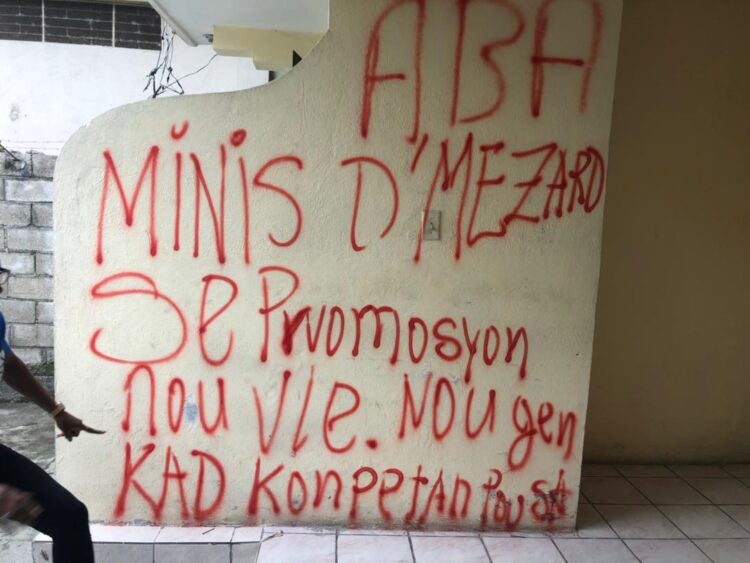 ABA
MINIS D'MEZARD
Se Pwomosyon
nou vle. NOU gen
KAD Konpetan Pou sa